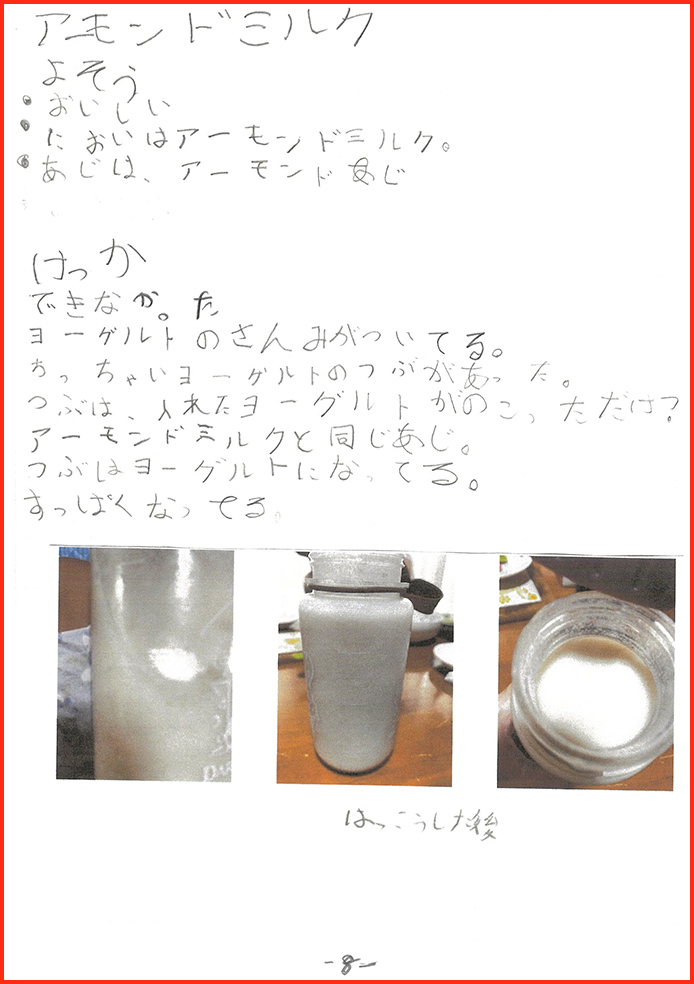 アーモンドミルク
よそう
・おいしい
・においはアーモンドミルク。
・あじは、アーモンドあじ
けっか
できなかった
ヨーグルトのさんみがついてる。
ちっちゃいヨーグルトのつぶがあった。
つぶは、入れたヨーグルトがのこっただけ?
アーモンドミルクと同じあじ。
つぶはヨーグルトになってる。
すっぱくなってる。
はっこうした後
-8-